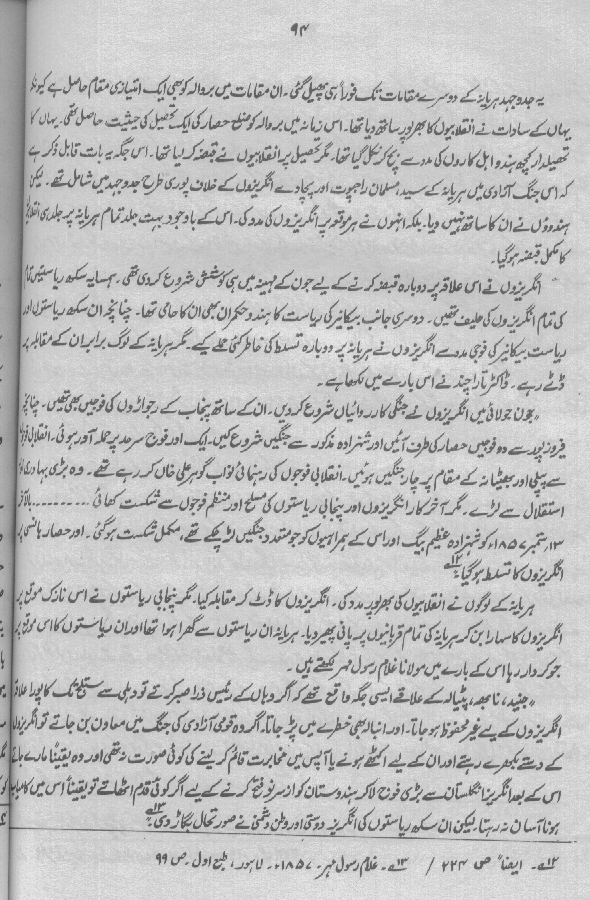 ۹۴
یہ جدوجہد ہریانہ کے دوسرے مقامات تک فوراً ہی پھیل گئی۔ ان مقامات میں بروالہ کو بھی ایک امتیازی مقام حاصل ہے کیونکہ
یہاں کے سادات نے انقلابیوں کا بھرپور ساتھ دیا تھا۔ اس زمانہ میں بروالہ کو ضلع حصار کی ایک تحصیل کی حیثیت حاصل تھی۔ یہاں کا
تحصیلدار کچھ ہندو اہل کاروں کی مدد سے بچ کر نکل گیا تھا۔ مگر تحصیل پر انقلابیوں نے قبضہ کر لیا تھا۔ اس جگہ یہ بات قابل ذکر ہے
کہ اس جنگ آزادی میں ہریانہ کے سید، مسلمان راجپوت اور پچھادے انگریزوں کے خلاف پوری طرح جدوجہد میں شامل تھے۔ لیکن
ہندوؤں نے ان کا ساتھ نہیں دیا۔ بلکہ انہوں نے ہر موقعہ پر انگریزوں کی مدد کی۔ اس کے باوجود بہت جلد تمام ہریانہ پر جلد ہی
کا مکمل قبضہ ہو گیا۔
انگریزوں نے اس علاقہ پر دوبارہ قبضہ کرنے کے لیے جون کے مہینہ میں ہی کوشش شروع کر دی تھی۔ ہمسایہ سکھ ریاستیں تمام
کی تمام انگریزوں کی حلیف تھیں۔ دوسری جانب بیکانیر کی ریاست کا ہندو حکمران بھی ان کا حامی تھا۔ چنانچہ ان سکھ ریاستوں اور
ریاست بیکانیر کی فوجی مدد سے انگریزوں نے ہریانہ پر دوبارہ تسلط کی خاطر کئی حملے کیے۔ مگر ہریانہ کے لوگ برابر ان کے مقابلہ پر
ڈٹے رہے۔ ڈاکٹر تارا چند نے اس بارے میں لکھا ہے۔
"جون جولائی میں انگریزوں نے جنگی کارروائیاں شروع کر دیں۔ ان کے ساتھ پنجاب کے رجواڑوں کی فوجیں بھی تھیں۔ چنانچہ
فیروز پور سے دو فوجیں حصار کی طرف آئیں اور شہزادہ مذکور سے جنگیں شروع کیں۔ ایک اور فوج سرسہ پر حملہ آور ہوئی۔ انقلابی
سے پہلی اور بھٹیانہ کے مقام پر چار جنگیں ہوئیں۔ انقلابی فوجوں کی رہنمائی نواب گوہر علی خاں کر رہے تھے۔ وہ بڑی بہادری
استقلال سے لڑے۔ مگر آخر کار انگریزوں اور پنجابی ریاستوں کی مسلح اور منظم فوجوں سے شکست کھائی ........ بالآخر
۱۳ ستمبر ۱۸۵۷ء کو شہزادہ عظیم بیگ اور اس کے ہمراہیوں کو جو متعدد جنگیں لڑ چکے تھے، مکمل شکست ہو گئی۔ اور حصار ہانسی پر
انگریزوں کا تسلط ہو گیا"۔ ۱۲ے
ہریانہ کے لوگوں نے انقلابیوں کی بھرپور مدد کی۔ انگریزوں کا ڈٹ کر مقابلہ کیا۔ مگر پنجابی ریاستوں نے اس نازک موقع پر
انگریزوں کا سہارا بن کر ہریانہ کی تمام قربانیوں پر پانی پھیر دیا۔ ہریانہ ان ریاستوں سے گھرا ہوا تھا اور ان ریاستوں کا اس موقع پر
جو کردار رہا اس کے بارے میں مولانا غلام رسول مہر لکھتے ہیں۔
"جنید، نابھہ، پٹیالہ کے علاقے ایسی جگہ واقع تھے کہ اگر وہاں کے رئیس ذرا صبر کرتے تو دہلی سے ستلج تک کا پورا علاقہ
انگریزوں کے لیے غیر محفوظ ہو جاتا۔ اور انبالہ بھی خطرے میں پڑ جاتا۔ اگر وہ قومی آزادی کی جنگ میں معاون بن جاتے تو انگریزوں
کے دستے بکھرے رہتے اور ان کے لیے اکٹھے ہونے یا آپس میں مخابرت قائم کر لینے کی کوئی صورت نہ تھی اور وہ یقیناً مارے جاتے
اس کے بعد انگریز انگلستان سے بڑی فوج لا کر ہندوستان کو از سر نو فتح کرنے کے لیے اگر کوئی قدم اٹھاتے تو یقیناً اس میں کامیاب
ہونا آسان نہ رہتا۔ لیکن ان سکھ ریاستوں کی انگریز دوستی اور وطن دشمنی نے صورتحال بگاڑ دی"۔ ۱۳ے
۱۲ے۔ ایضاً ص ۲۲۴ / ۱۳ے۔ غلام رسول مہر۔ ۱۸۵۷ء۔ لاہور، طبع اول۔ ص ۹۹